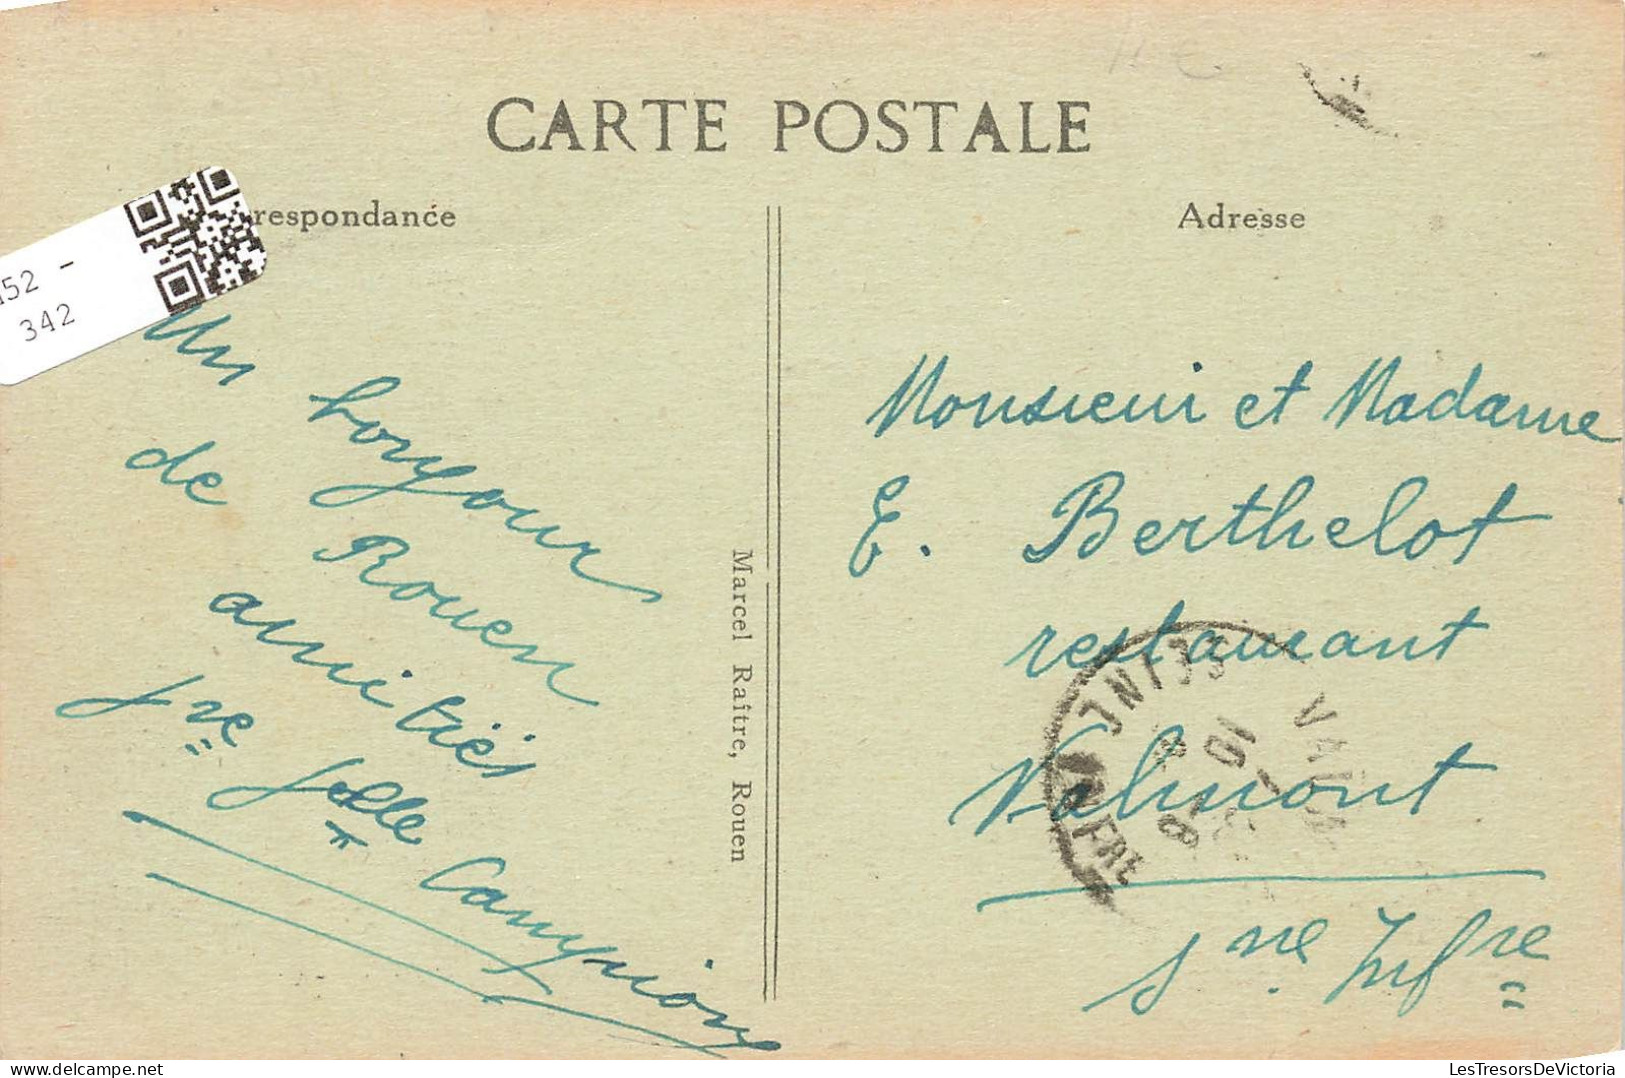 CARTE POSTALE
respondance
Adresse
152 -
342
Un bonjour
de Rouen
amitiés
fre Jelle Campion
Marcel Raître, Rouen
Monsieur et Madame
E. Berthelot
restaurant
Valmont
Sne Infre
delcampe.net
LesTresorsDeVictoria